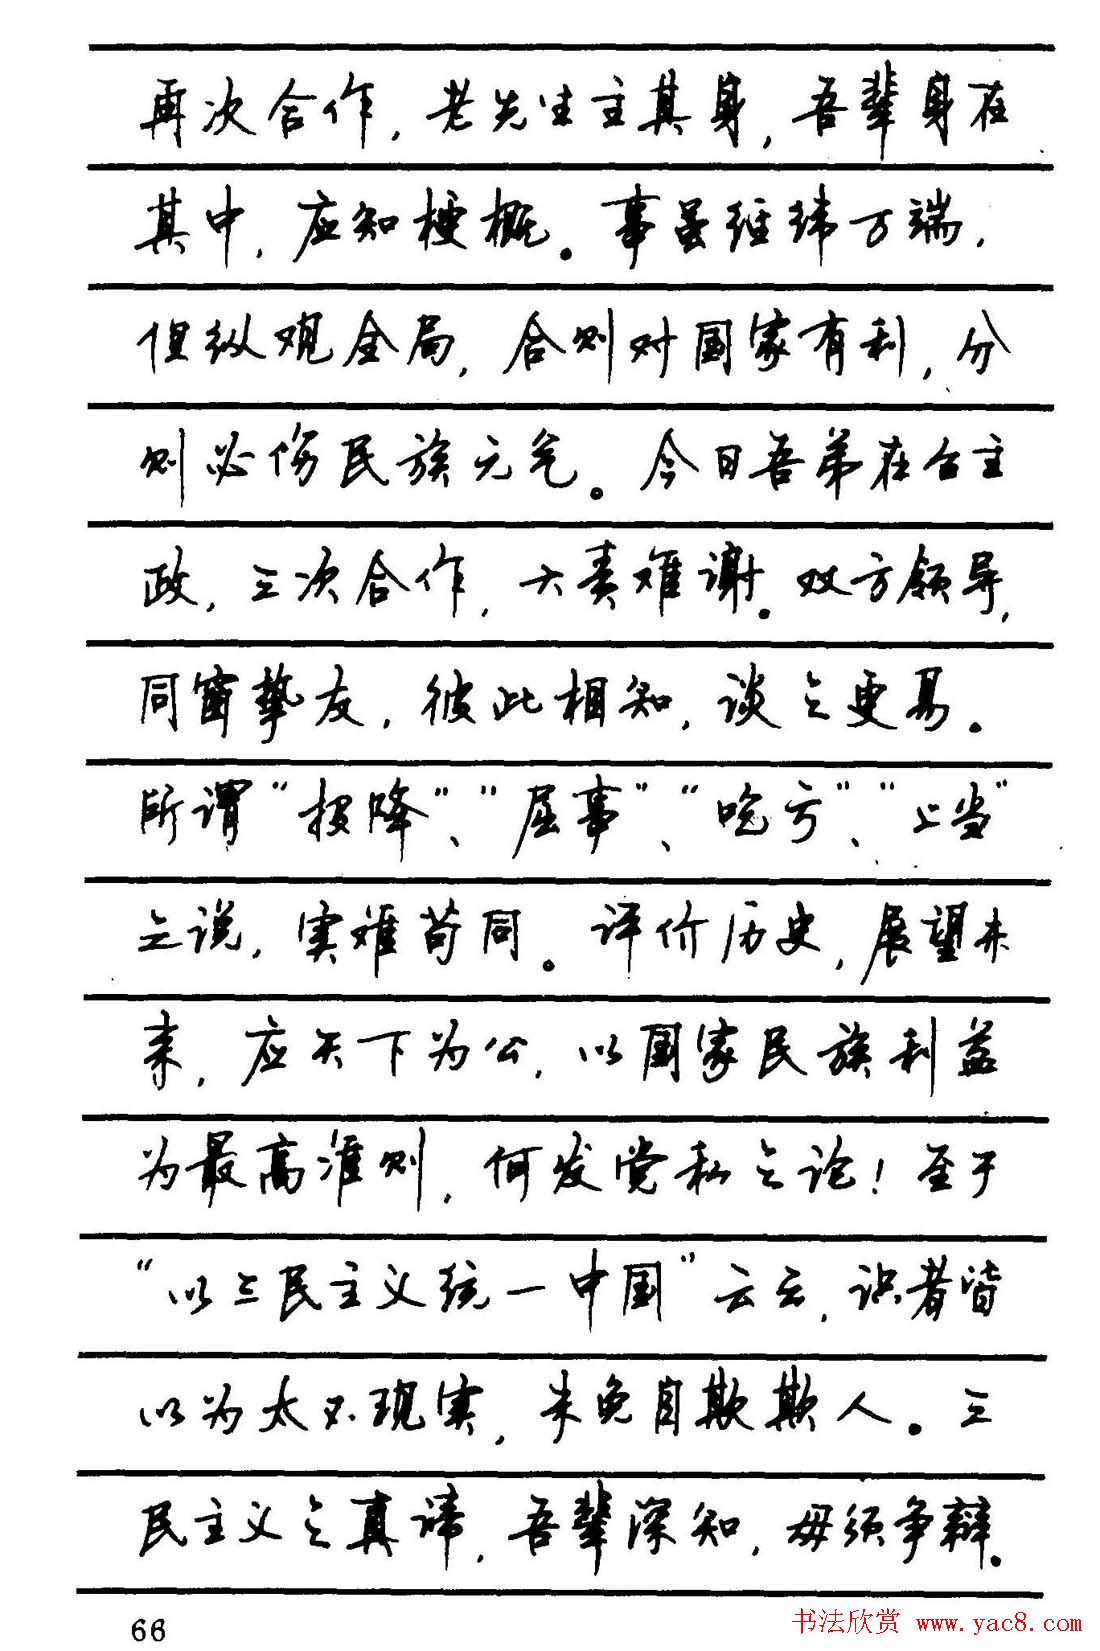 再次合作，老先生主其身，吾辈身在
其中，应知梗概。事虽经纬万端，
但纵观全局，合则对国家有利，分
则必伤民族元气。今日吾弟在台主
政，三次合作，大责难谢。双方领导，
同窗挚友，彼此相知，谈之更易。
所谓“投降”、“屈事”、“吃亏”、“上当”
之说，实难苟同。评价历史，展望未
来，应天下为公，以国家民族利益
为最高准则，何发党私之论！至于
“以三民主义统一中国”云云，识者皆
以为太不现实，未免自欺欺人。三
民主义之真谛，吾辈深知，毋须争辩。
66
书法欣赏 www.yac8.com